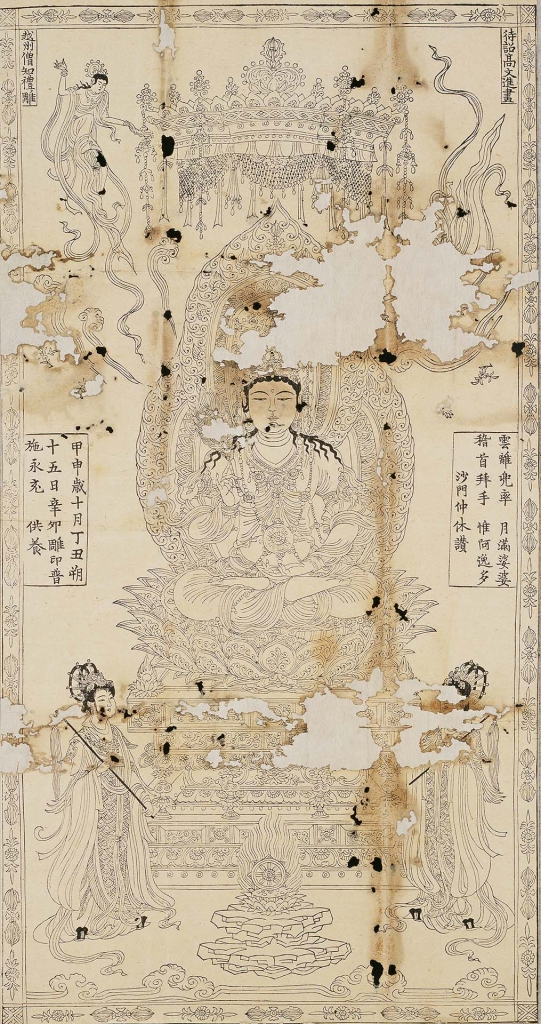 待詔高文進畫
越州僧知禮雕
雲離兜率　月滿婆婆
稽首拜手　惟阿逸多
沙門仲休讚
甲申歲十月丁丑朔
十五日辛卯雕印普
施永充　供養